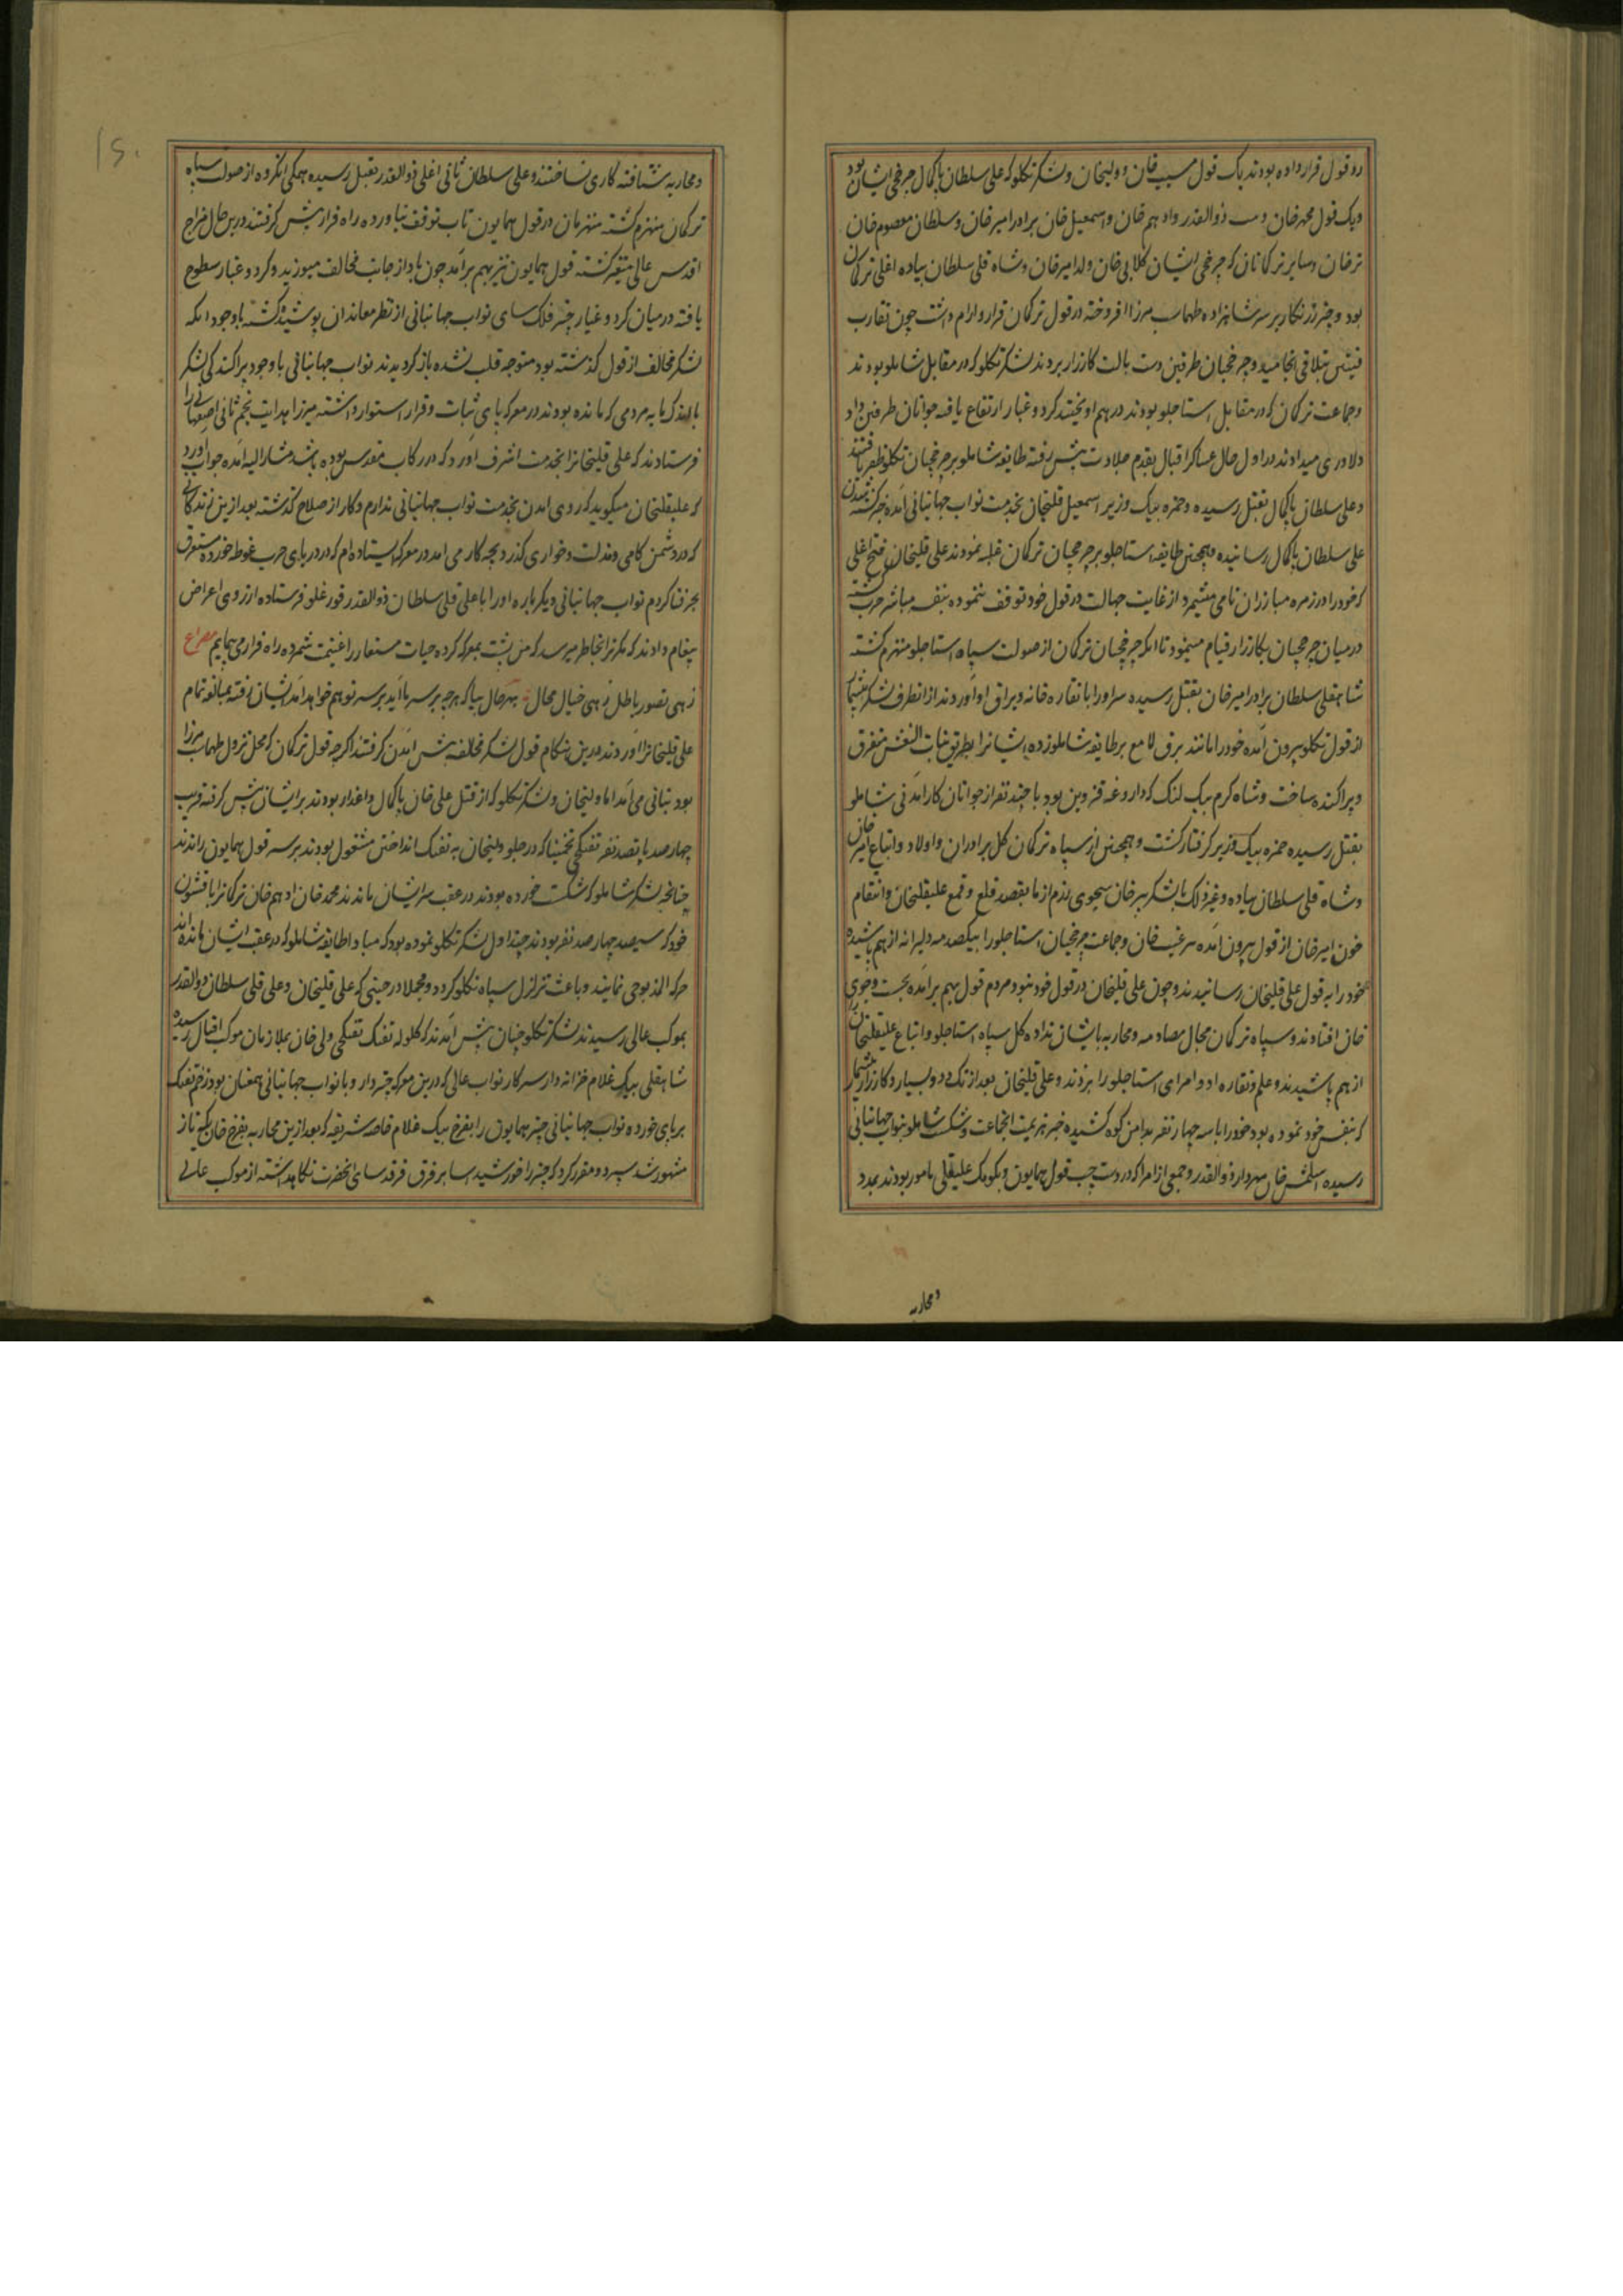 دو قول قرار داده بودند یک قول مسیب خان و ولیخان و لشکر تکلو که علی سلطان پاکمال چرخچی ایشان بود
و یک قول محمدخان و ... ذوالقدر و ادهم خان و اسمعیل خان برادر امیر خان و سلطان معصوم خان
ترخان و سایر ترکانان که چرخچی ایشان کلابی خان ولد امیرخان و شاه قلی سلطان پیاده اغلی ترکان
بود و چتر زرنگار بر سر شاهزاده طهماسب میرزا افروخته در قول ترکمان قرار و ارام داشت چون تقارب
فیئتین بتلاقی انجامید و چرخچیان طرفین دست بالت کارزار بردند لشکر تکلو که در مقابل شاملو بودند
و جماعت ترکمان که در مقابل استاجلو بودند در هم اویختند کرد و غبار ارتفاع یافته جوانان طرفین داد
دلاوری میدادند در اول حال عساکر اقبال بقدم جلادت پیش رفته طایفه شاملو بر چرخچیان تکلو ظفر یافتند
و علی سلطان پاکمال بقتل رسیده و حمزه بیک وزیر اسمعیل قلیخان بخدمت نواب جهانبانی آمده خبر کشته شدن
علی سلطان پاکمال رسانیده و همچنین طایفه استاجلو بر چرخچیان ترکمان غلبه نمودند علی قلیخان فتح اغلی
که خود را در زمره مبارزان نامی میشمرد از غایت جهالت در قول خود توقف ننموده بنفسه مباشر حرب کشته
در میان چرخچیان بکارزار قیام مینمود تا انکه چرخچیان ترکمان از صولت سپاه استاجلو منهزم کشته
شاهقلی سلطان برادر امیر خان بقتل رسیده سر او را با نقاره خانه و یراق او آوردند از انطرف لشکر بیشمار
از قول تکلو بیرون آمده خود را مانند برق لامع بر طایفه شاملو زده ایشانرا بطریق بنات النعش متفرق
و پراکنده ساخت و شاه کرم بیک لنک که داروغه قزوین بود با چند نفر از جوانان کارآمدنی شاملو
بقتل رسیده حمزه بیک وزیر کرفتار کشت و همچنین از سپاه ترکمان کل برادران و اولاد و اتباع امیر خان
و شاه قلی سلطان پیاده و غیر ذلک با لشکر ... بقصد قلع و قمع علیقلیخان و انتقام
خون امیر خان از قول بیرون آمده ... و جماعت چرخچیان استاجلو را بیکصدمه دلیرانه از هم پاشیده
خود را به قول علی قلیخان رسانیدند و چون علی قلیخان در قول خود نبود مردم قول بهم برآمده بجست و جوی
خان افتادند و سپاه ترکمان مجال مصادمه و محاربه بایشان نداده کل سپاه استاجلو و اتباع علیقلیخان
از هم پاشیدند و علم و نقاره او و امرای استاجلو را بزدند و علی قلیخان بعد از تک و دو بسیار و کارزار بیشمار
که بنفس خود نموده بود خود را با سه چهار نفر بدامن کوه کشیده خبر هزیمت انجماعت و شکست شاملو بنواب جهانبانی
رسیده اسلمش خان مهردار ذوالقدر و جمعی از امرا که در دست چپ قول همایون و بکومک علیقلی مامور بودند بمدد
و محاربه
و محاربه شتافته کاری نساختند و علی سلطان ثانی اغلی ذوالقدر بقتل رسیده همکی انکروه از صولت سپاه
ترکمان منهزم کشته منهزمان در قول همایون تاب توقف نیاورده راه فرار پیش کرفتند درین حال مزاج
اقدس عالی متغیر کشته قول همایون نیز بهم برآمد چون باد از جانب مخالف میوزید و کرد و غبار سطوح
یافته در میان کرد و غبار چتر فلک سای نواب جهانبانی از نظر معاندان پوشیده کشته باوجود انکه
لشکر مخالف از قول کذشته بود متوجه قلب نشده باز کردیدند نواب جهانبانی باوجود پراکندکی لشکر
باندک مایه مردمی که مانده بودند در معرکه پای ثبات و قرار استوار داشته میرزا هدایت نجم ثانی اصفهانی را
فرستادند که علی قلیخانرا بخدمت اشرف آورد که در رکاب مقدس بوده باشد مشارالیه آمده جواب آورد
که علیقلیخان میکوید که روی امدن بخدمت نواب جهانبانی ندارم و کار از صلاح کذشته بعد ازین زندکانی
که در دشمن کامی و مذلت و خواری کذرد بچه کار می امد در معرکه ایستاده ام که در دریای حرب غوطه خورده مستغرق
بحر فنا کردم نواب جهانبانی دیکر باره او را با علی قلی سلطان ذوالقدر قورغلو فرستاده از روی اعراض
پیغام دادند که مکر ترا بخاطر میرسد که من پشت بمعرکه کرده حیات مستعار را غنیمت شمرده راه فرار می پیایم مصراع
زهی تصور باطل زهی خیال محال بهر حال بیا که هر چه بر سر ما آید بر سر تو هم خواهد آمد ایشان رفته بمبالغه تمام
علی قلیخانرا آوردند درین هنکام قول لشکر مخالف پیش امدن کرفتند اکرچه قول ترکمان که محل نزول طهماسب میرزا
بود بتانی می آمد اما ولیخان و لشکر تکلو که از قتل علی خان پاکمال داغدار بودند بر ایشان پیشی کرفته قریب
چهارصد پانصد نفر تفنکچی تخمینا که در جلو ولیخان به تفنک انداختن مشغول بودند بر سر قول همایون راندند
چنانچه لشکر شاملو که شکست خورده بودند در عقب سر ایشان ماندند محمد خان ادهم خان ترکانرا با قشون
خود که سیصد چهارصد نفر بودند چنداول لشکر تکلو نموده بود که مبادا طایفه شاملو که در عقب ایشان مانده اند
حرکه المذبوحی نمایند و باعث تزلزل سپاه تکلو کردد و مجملا در حینی که علی قلیخان و علی قلی سلطان ذوالقدر
بموکب عالی رسیدند لشکر تکلو چنان پیش آمدند که کلوله تفنک تفنکچی ولی خان بملازمان موکب اقبال رسیده
شاهقلی بیک غلام خزانه دار سرکار نواب عالی که درین معرکه چتردار و با نواب جهانبانی همعنان بود زخم تفنک
بر پای خورده نواب جهانبانی چتر همایون را بفرخ بیک غلام خاصه شریفه که بعد ازین محاربه بفرخ خان یکه تاز
مشهور شد سپرد و مقرر کرد که چتر را خورشید اسا بر فرق فرقد سای انحضرت نکاه داشته از موکب عالی